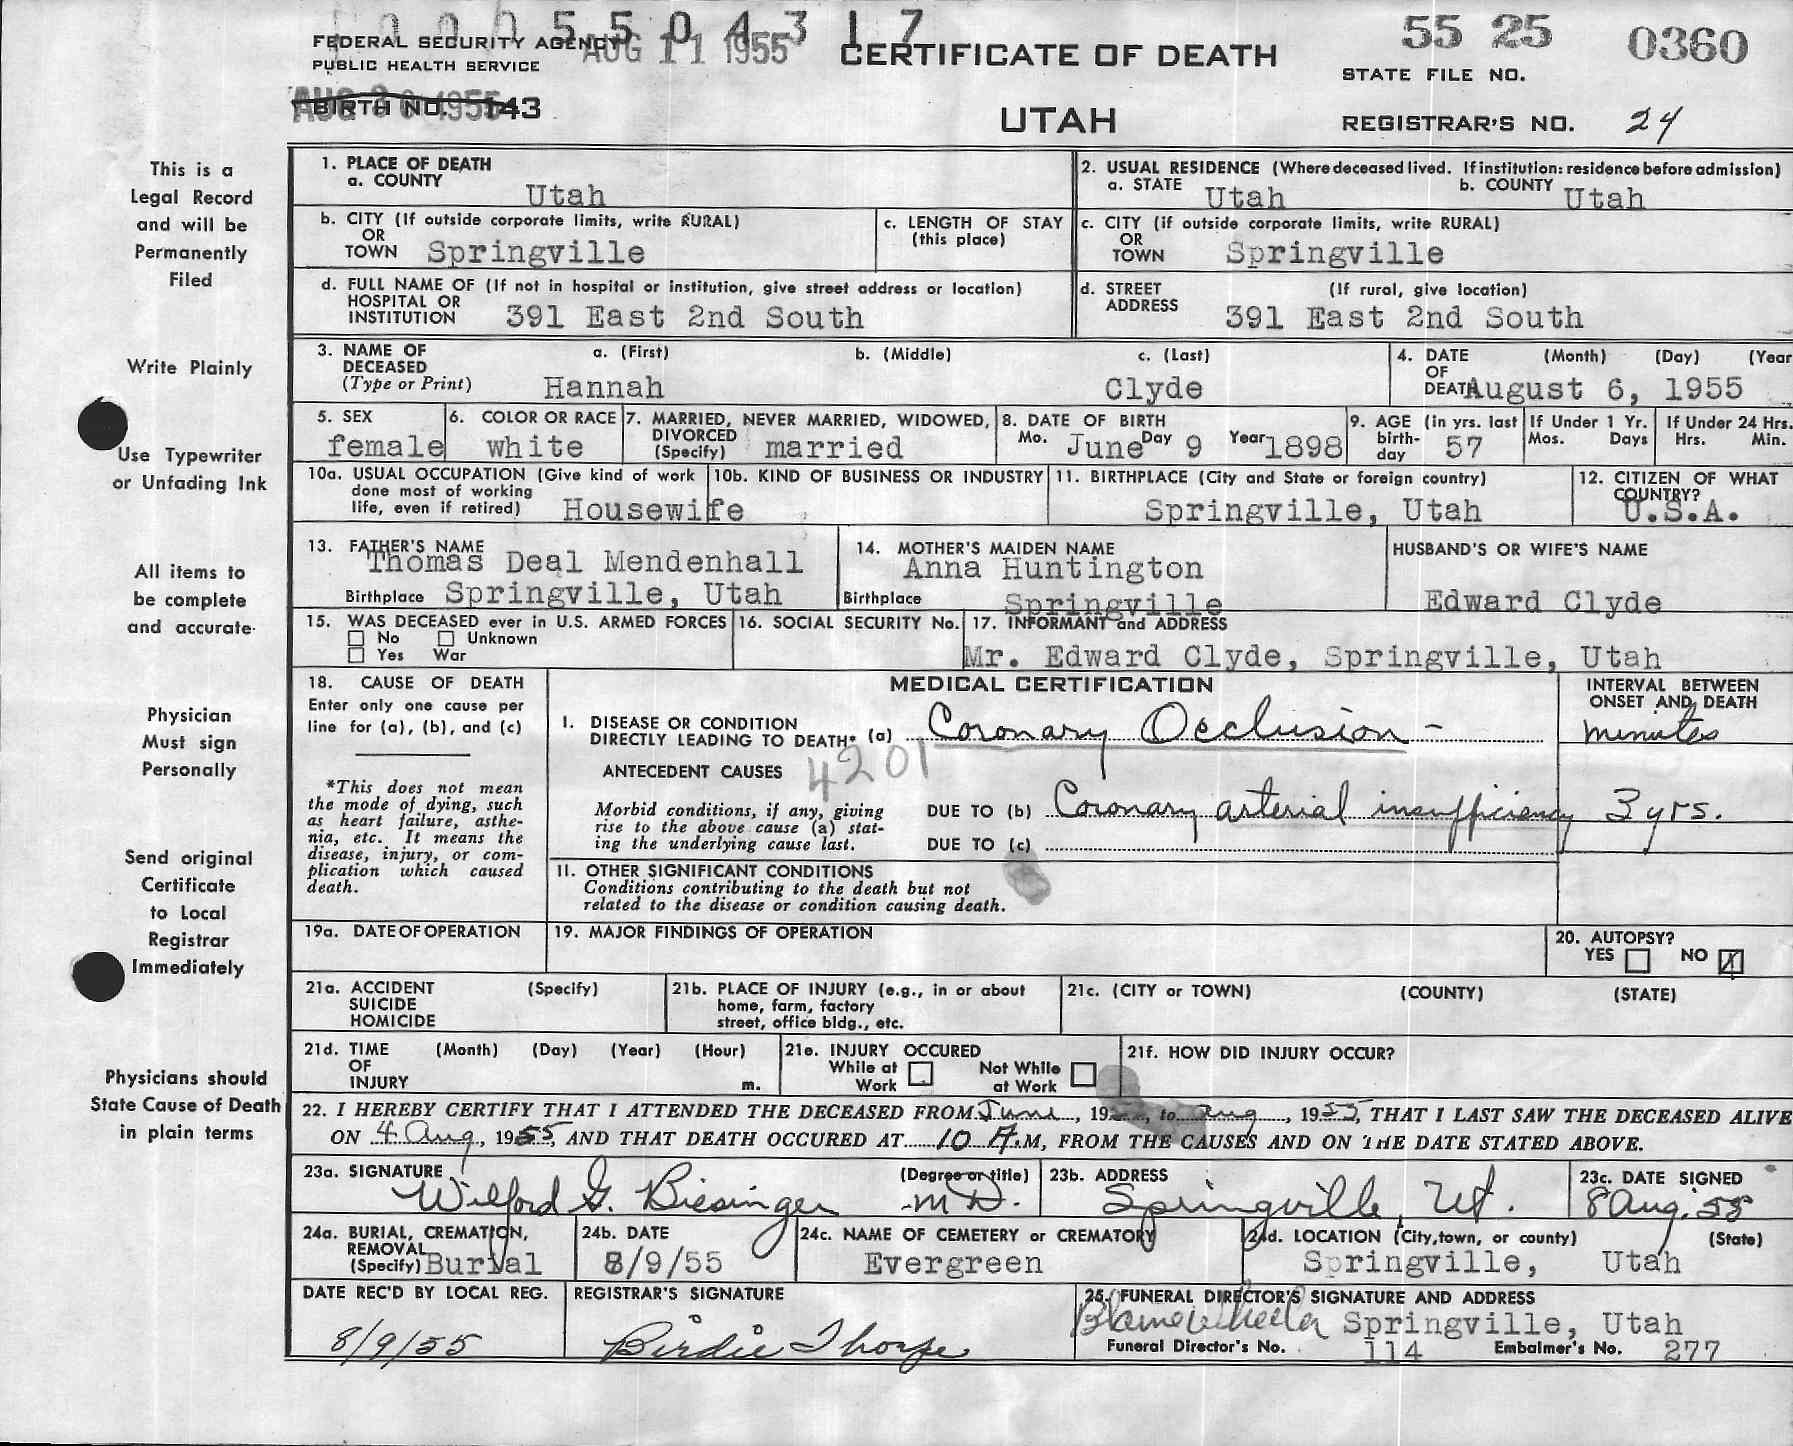 0005504317
FEDERAL SECURITY AGENCY AUG 11 1955 CERTIFICATE OF DEATH 55 25 0360
PUBLIC HEALTH SERVICE STATE FILE NO.
BIRTH NO. 143
UTAH REGISTRAR'S NO. 24
This is a
Legal Record
and will be
Permanently
Filed
Write Plainly
Use Typewriter
or Unfading Ink
All items to
be complete
and accurate.
Physician
Must sign
Personally
Send original
Certificate
to Local
Registrar
Immediately
Physicians should
State Cause of Death
in plain terms
1. PLACE OF DEATH
a. COUNTY Utah
2. USUAL RESIDENCE (Where deceased lived. If institution: residence before admission)
a. STATE Utah b. COUNTY Utah
b. CITY (If outside corporate limits, write RURAL)
OR
TOWN Springville
c. LENGTH OF STAY
(this place)
c. CITY (if outside corporate limits, write RURAL)
OR
TOWN Springville
d. FULL NAME OF (If not in hospital or institution, give street address or location)
HOSPITAL OR
INSTITUTION 391 East 2nd South
d. STREET (If rural, give location)
ADDRESS 391 East 2nd South
3. NAME OF a. (First) b. (Middle) c. (Last)
DECEASED
(Type or Print) Hannah Clyde
4. DATE (Month) (Day) (Year
OF
DEATH August 6, 1955
5. SEX
female
6. COLOR OR RACE
white
7. MARRIED, NEVER MARRIED, WIDOWED,
DIVORCED
(Specify) married
8. DATE OF BIRTH
Mo. June Day 9 Year 1898
9. AGE (in yrs. last
birth-
day 57
If Under 1 Yr.
Mos. Days
If Under 24 Hrs.
Hrs. Min.
10a. USUAL OCCUPATION (Give kind of work
done most of working
life, even if retired) Housewife
10b. KIND OF BUSINESS OR INDUSTRY
11. BIRTHPLACE (City and State or foreign country)
Springville, Utah
12. CITIZEN OF WHAT
COUNTRY?
U.S.A.
13. FATHER'S NAME
Thomas Deal Mendenhall
Birthplace Springville, Utah
14. MOTHER'S MAIDEN NAME
Anna Huntington
Birthplace Springville
HUSBAND'S OR WIFE'S NAME
Edward Clyde
15. WAS DECEASED ever in U.S. ARMED FORCES
No Unknown
Yes War
16. SOCIAL SECURITY No.
17. INFORMANT and ADDRESS
Mr. Edward Clyde, Springville, Utah
18. CAUSE OF DEATH
Enter only one cause per
line for (a), (b), and (c)
*This does not mean
the mode of dying, such
as heart failure, asthe-
nia, etc. It means the
disease, injury, or com-
plication which caused
death.
MEDICAL CERTIFICATION
INTERVAL BETWEEN
ONSET AND DEATH
I. DISEASE OR CONDITION
DIRECTLY LEADING TO DEATH* (a) Coronary Occlusion - minutes
ANTECEDENT CAUSES 4201
Morbid conditions, if any, giving
rise to the above cause (a) stat-
ing the underlying cause last.
DUE TO (b) Coronary arterial insufficiency 3 yrs.
DUE TO (c)
11. OTHER SIGNIFICANT CONDITIONS
Conditions contributing to the death but not
related to the disease or condition causing death.
19a. DATE OF OPERATION
19. MAJOR FINDINGS OF OPERATION
20. AUTOPSY?
YES NO X
21a. ACCIDENT (Specify)
SUICIDE
HOMICIDE
21b. PLACE OF INJURY (e.g., in or about
home, farm, factory
street, office bldg., etc.
21c. (CITY or TOWN) (COUNTY) (STATE)
21d. TIME (Month) (Day) (Year) (Hour)
OF
INJURY m.
21e. INJURY OCCURED
While at Not While
Work at Work
21f. HOW DID INJURY OCCUR?
22. I HEREBY CERTIFY THAT I ATTENDED THE DECEASED FROM June, 19 , to Aug, 1955, THAT I LAST SAW THE DECEASED ALIVE
ON 4 Aug, 1955, AND THAT DEATH OCCURED AT 10 A.M, FROM THE CAUSES AND ON THE DATE STATED ABOVE.
23a. SIGNATURE (Degree or title)
Wilford G. Biesinger M.D.
23b. ADDRESS
Springville, Ut.
23c. DATE SIGNED
8 Aug. 55
24a. BURIAL, CREMATION,
REMOVAL
(Specify) Burial
24b. DATE
8/9/55
24c. NAME OF CEMETERY or CREMATORY
Evergreen
24d. LOCATION (City, town, or county) (State)
Springville, Utah
DATE REC'D BY LOCAL REG.
8/9/55
REGISTRAR'S SIGNATURE
Birdie Thorpe
25. FUNERAL DIRECTOR'S SIGNATURE AND ADDRESS
Springville, Utah
Funeral Director's No. 114 Embalmer's No. 277